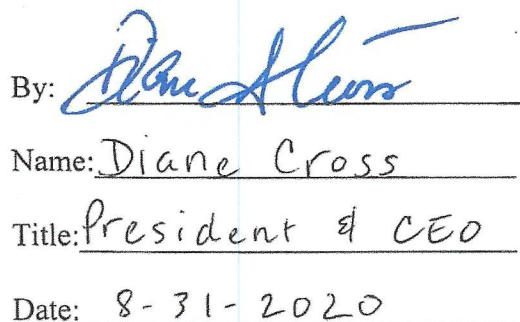 By: Diane S Cross
Name: Diane Cross
Title: President & CEO
Date: 8-31-2020